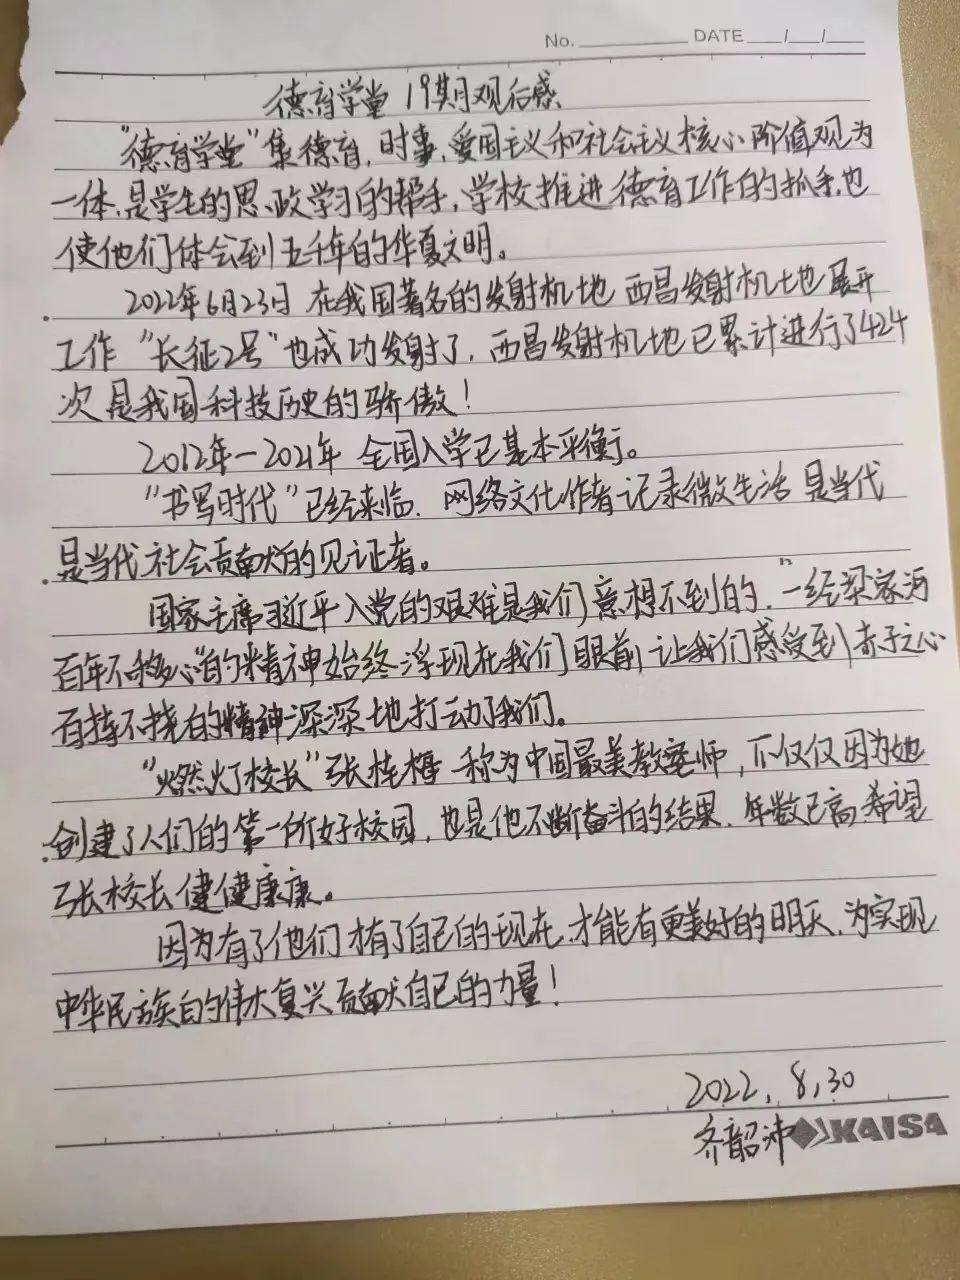 No. DATE / /
德育学堂 19期观后感
"德育学堂"集德育,时事,爱国主义和社会主义核心阶值观为
一体,是学生的思政学习的帮手,学校推进德育工作的抓手,也
使他们体会到五千年的华夏文明。
2022年6月23日 在我国著名的发射机地 西昌发射机地 展开
工作 "长征2号"也成功发射了,西昌发射机地已累计进行了424
次 是我国科技历史的骄傲!
2012年-2021年 全国入学已基本平衡。
"书写时代"已经来临. 网络文化作者记录微生活 是当代
是当代社会贡献的见证者。
国家主席习近平入党的艰难是我们意想不到的."一经梁家河
百年不移心"的精神始终浮现在我们眼前,让我们感受到赤子之心
百挠不挠的精神深深地打动了我们。
"燃灯校长"张桂梅 称为中国最美教师,不仅仅因为她
创建了人们的第一所好校园,也是他不断奋斗的结果.年数已高 希望
张校长健健康康。
因为有了他们才有了自己的现在,才能有更美好的明天,为实现
中华民族的伟大复兴贡献自己的力量!
2022,8,30
齐韶沛
KAISA